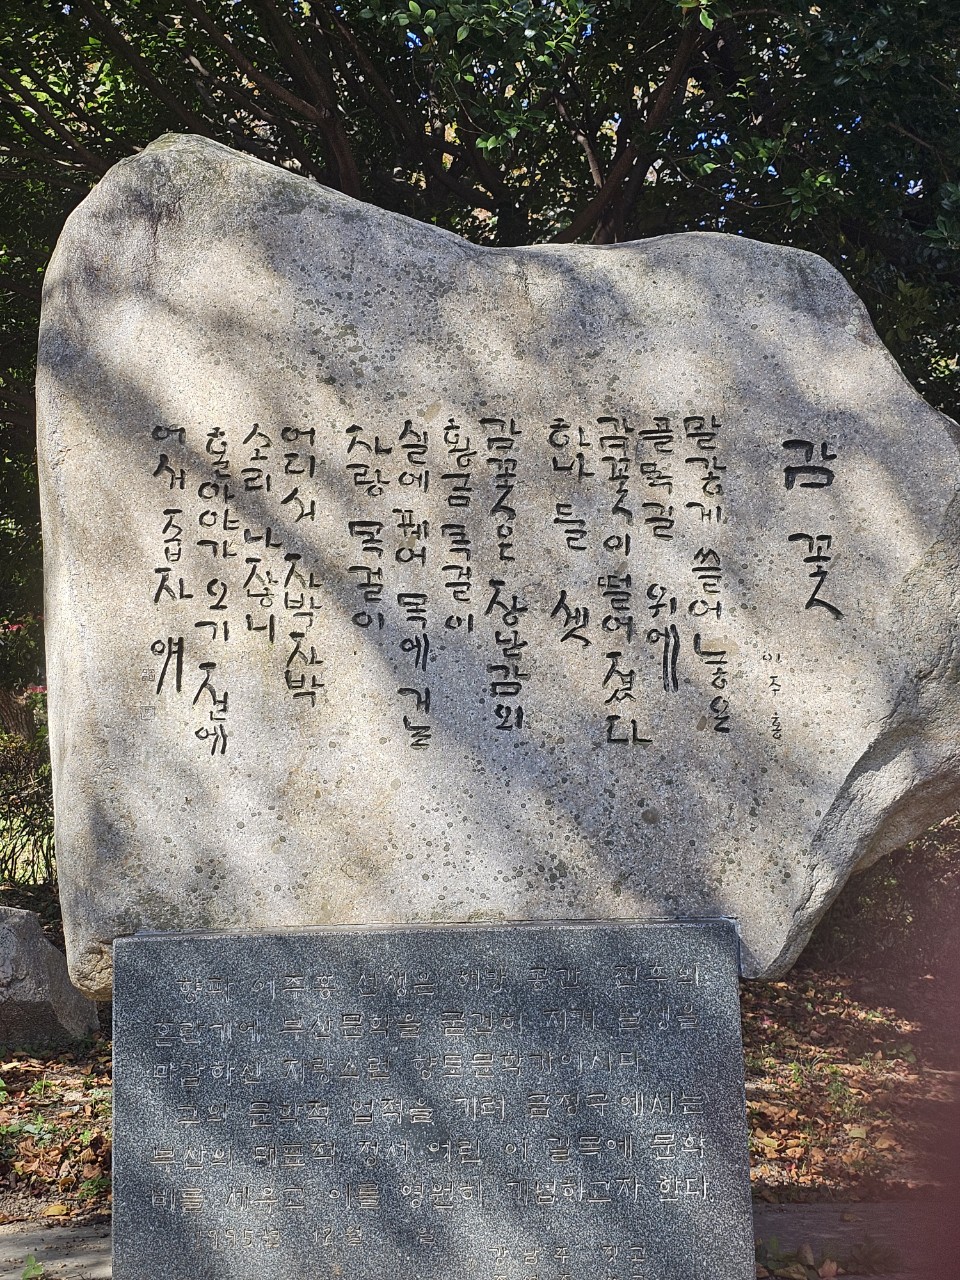 감꽃
이주홍
말갛게 쓸어 놓은
풀묵길 위에
감꽃이 떨어졌다
하나 둘 셋
감꽃은 장난감의
황금 목걸이
실에 꿰어 목에 거는
자랑 목걸이
어디서 자박자박
소리 나잖니
돌아가 오기 전에
어서 줍자 얘
향파 이주홍 선생은 해방 공간 전후의
혼란기에 부산문학을 굳건히 지켜
마감하신 자랑스런 향토문학가이시다
그의 문학적 업적을 기려 금정구에서는
부산의 대표적 정서 어린 이 길목에 문학
비를 세우고 이를 영원히 기념하고자 한다.
1995년 12월 일
강남주 짓고